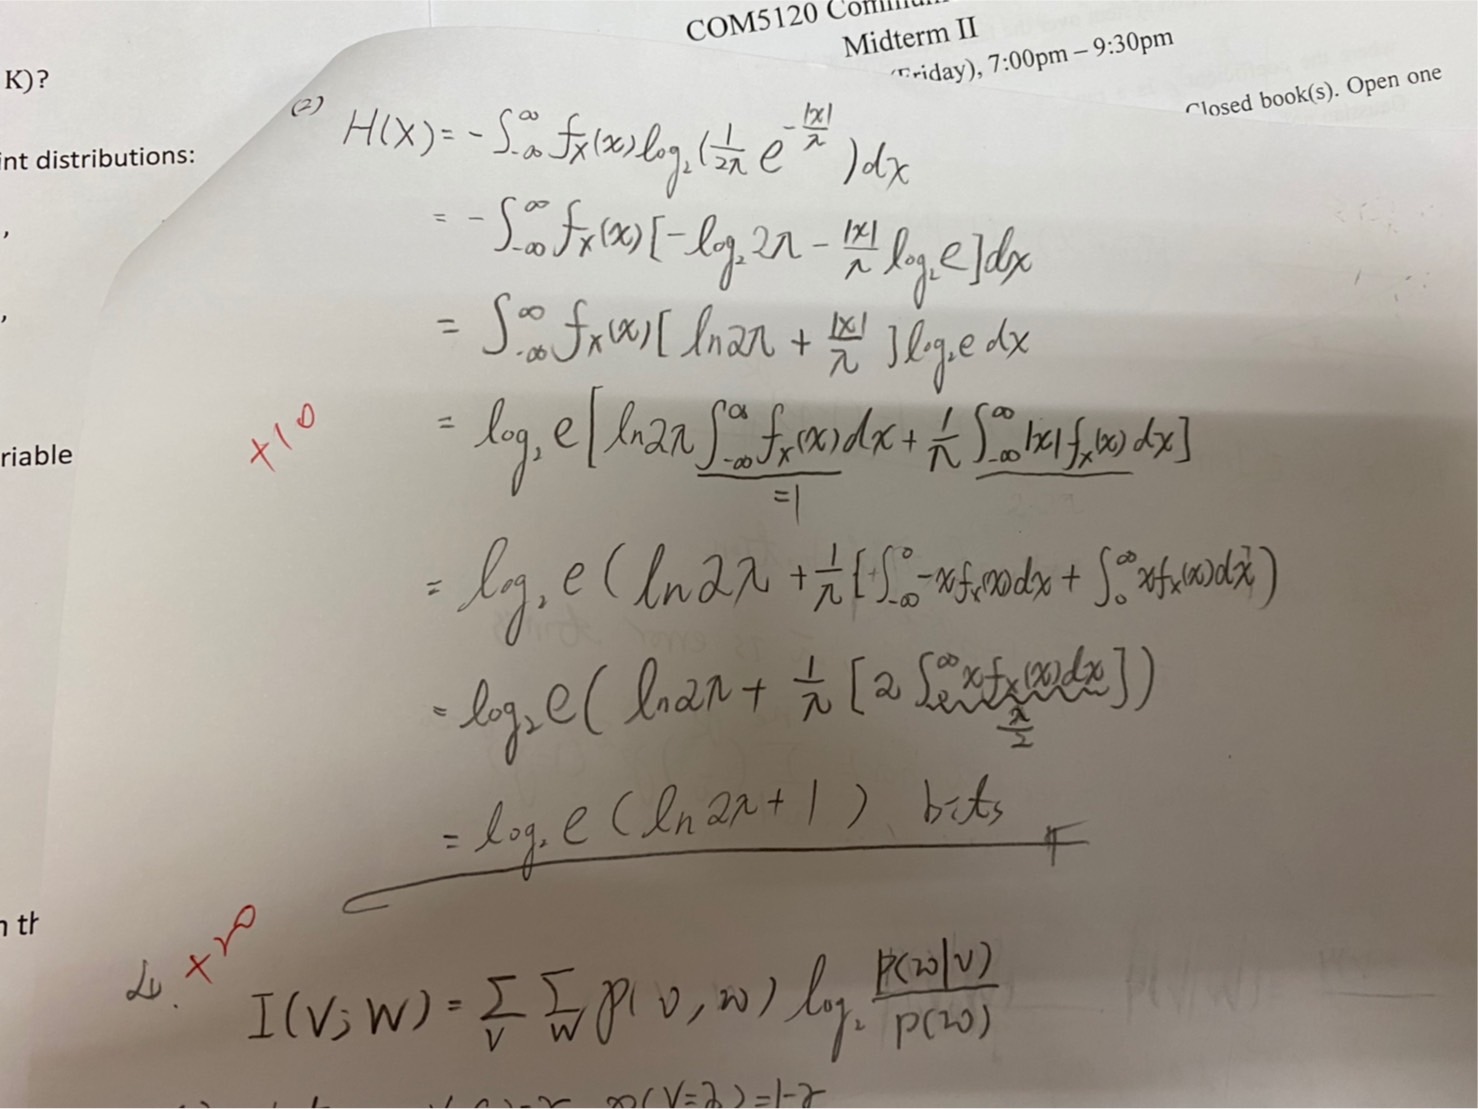 COM5120
Midterm II
riday), 7:00pm – 9:30pm
Closed book(s). Open one
K)?
int distributions:
,
,
riable
(2) H(X) = - ∫_{-∞}^{∞} f_X(x) log₂ (1/2λ e^{-|x|/λ}) dx
= - ∫_{-∞}^{∞} f_X(x) [-log₂ 2λ - |x|/λ log₂ e] dx
= ∫_{-∞}^{∞} f_X(x) [ ln2λ + |x|/λ ] log₂ e dx
+10
= log₂ e [ ln2λ ∫_{-∞}^{∞} f_X(x) dx + 1/λ ∫_{-∞}^{∞} |x| f_X(x) dx ]
=1
= log₂ e ( ln2λ + 1/λ [ ∫_{-∞}^{0} -x f_X(x) dx + ∫_{0}^{∞} x f_X(x) dx ] )
= log₂ e ( ln2λ + 1/λ [ 2 ∫_{0}^{∞} x f_X(x) dx ] )
λ/2
= log₂ e ( ln 2λ + 1 ) bits
n th
+20
I(V; W) = Σ_V Σ_W p(v, w) log₂ p(w|v)/p(w)
p(V=2)=1-γ